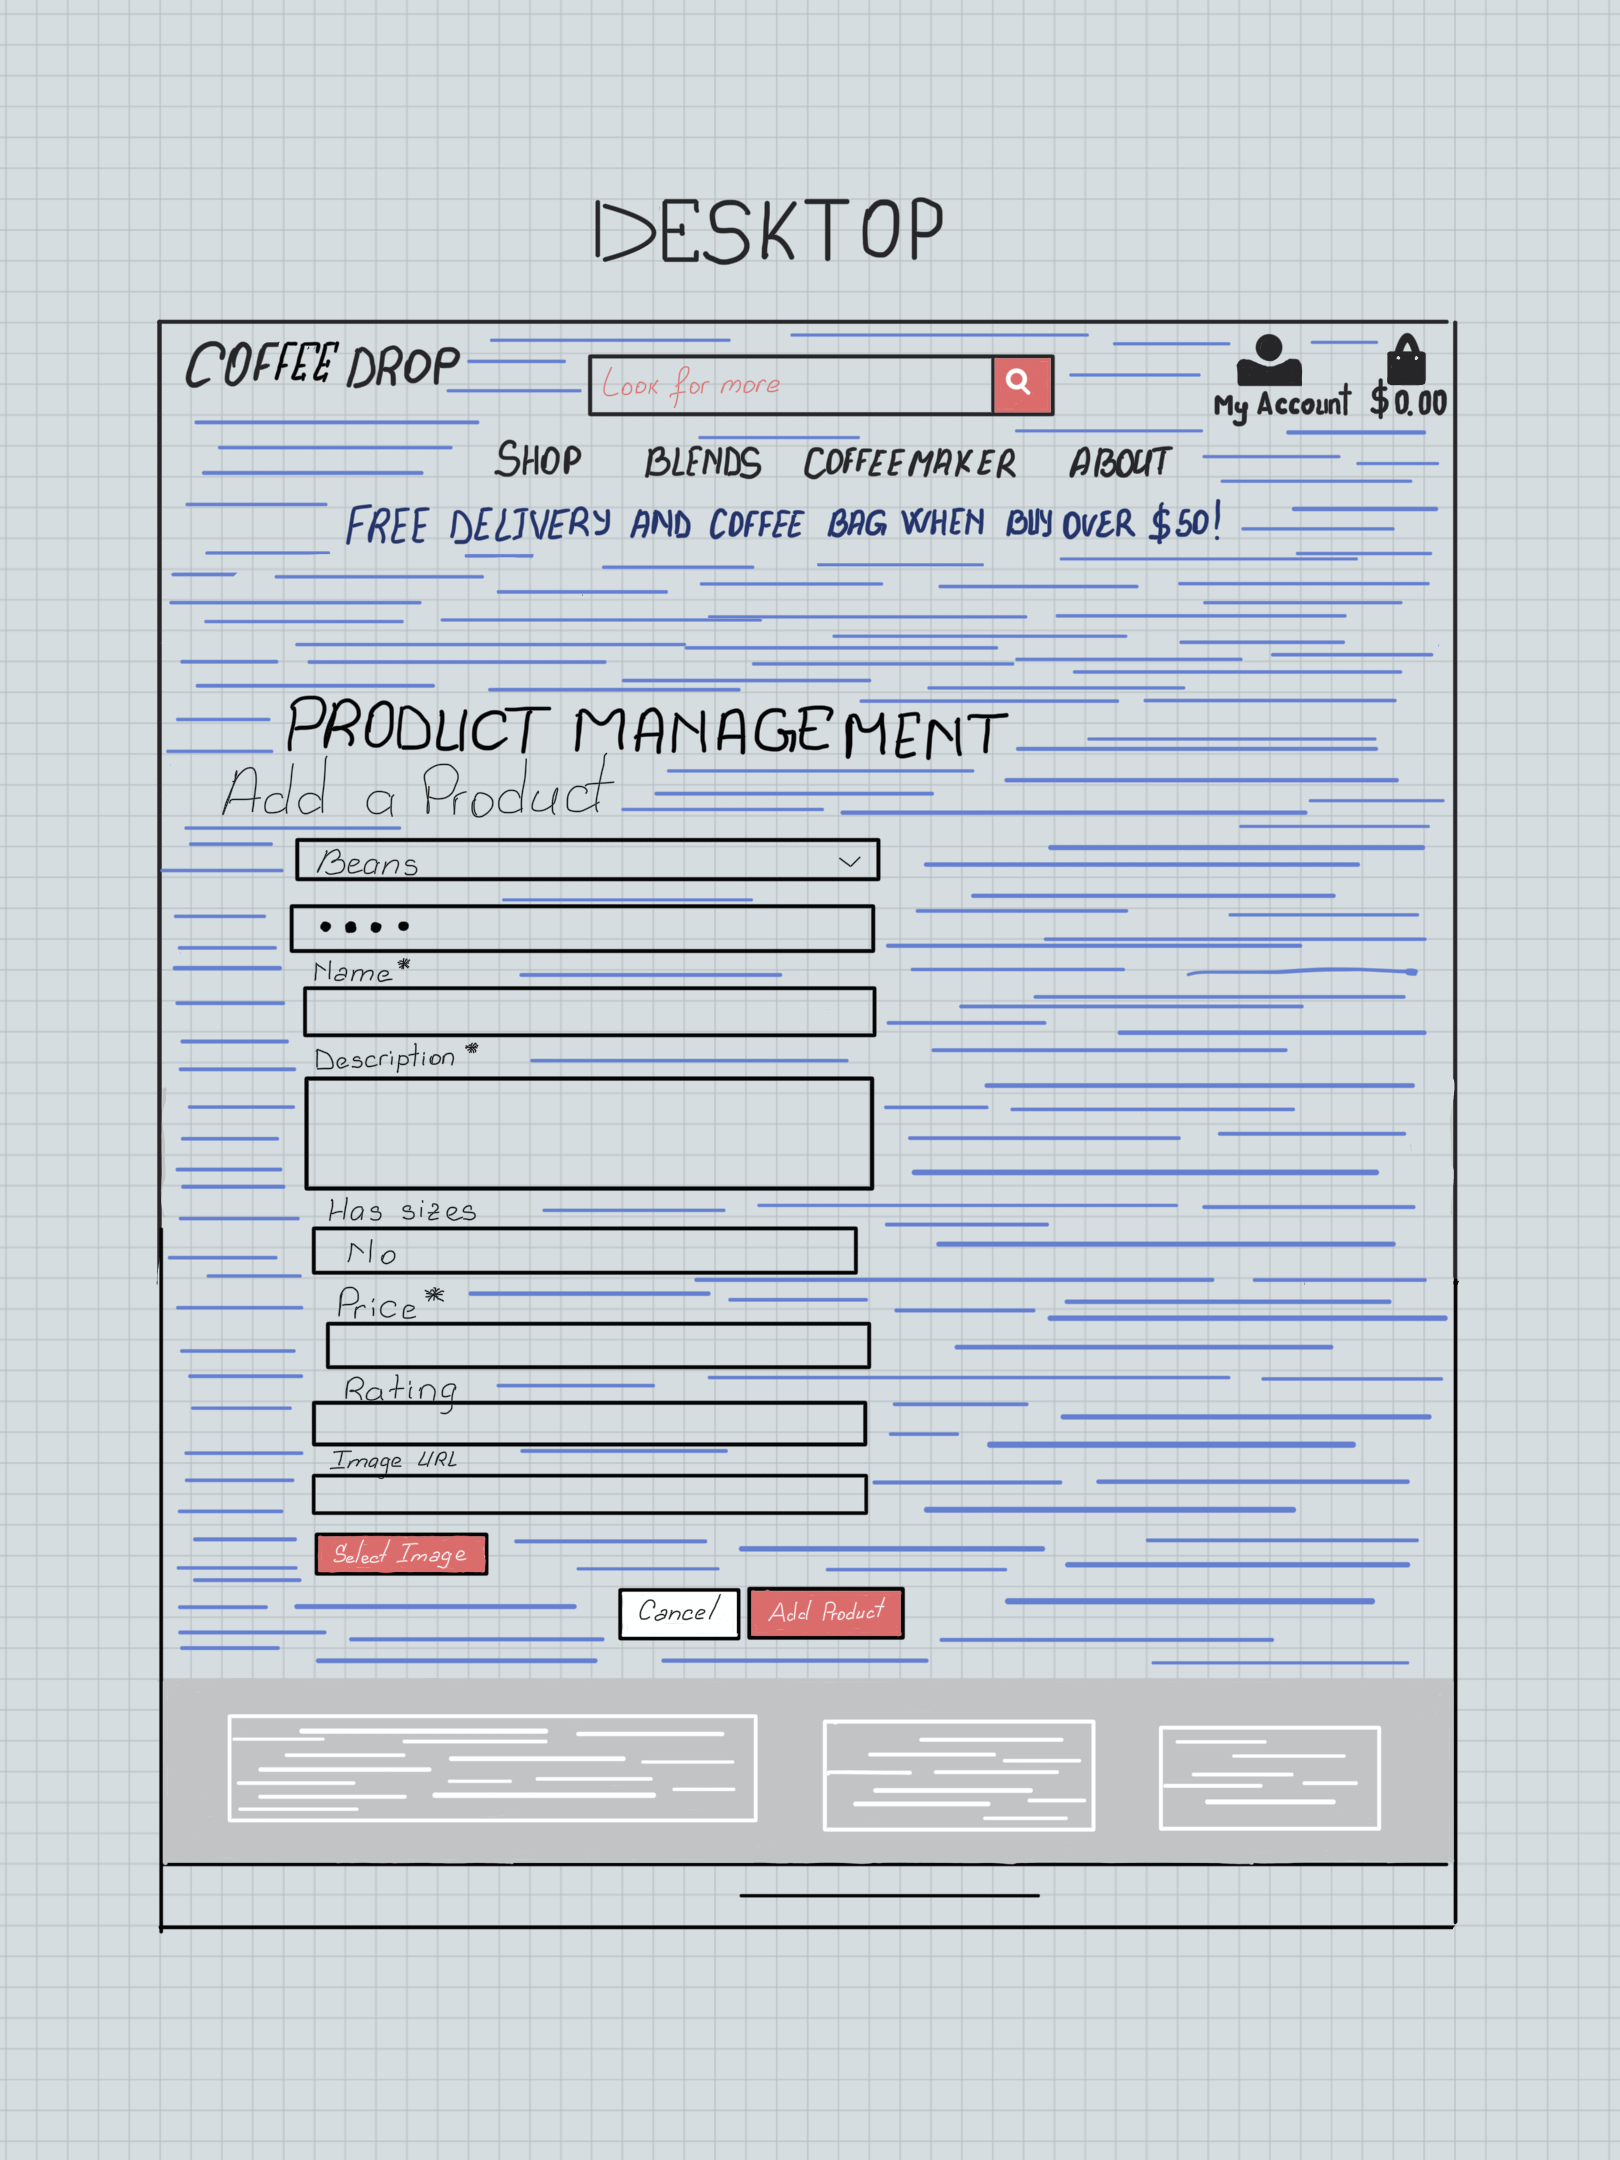 DESKTOP
COFFEE DROP
Look for more
My Account $0.00
SHOP BLENDS COFFEEMAKER ABOUT
FREE DELIVERY AND COFFEE BAG WHEN BUY OVER $50!
PRODUCT MANAGEMENT
Add a Product
Beans
Name*
Description*
Has sizes
No
Price*
Rating
Image URL
Select Image
Cancel Add Product